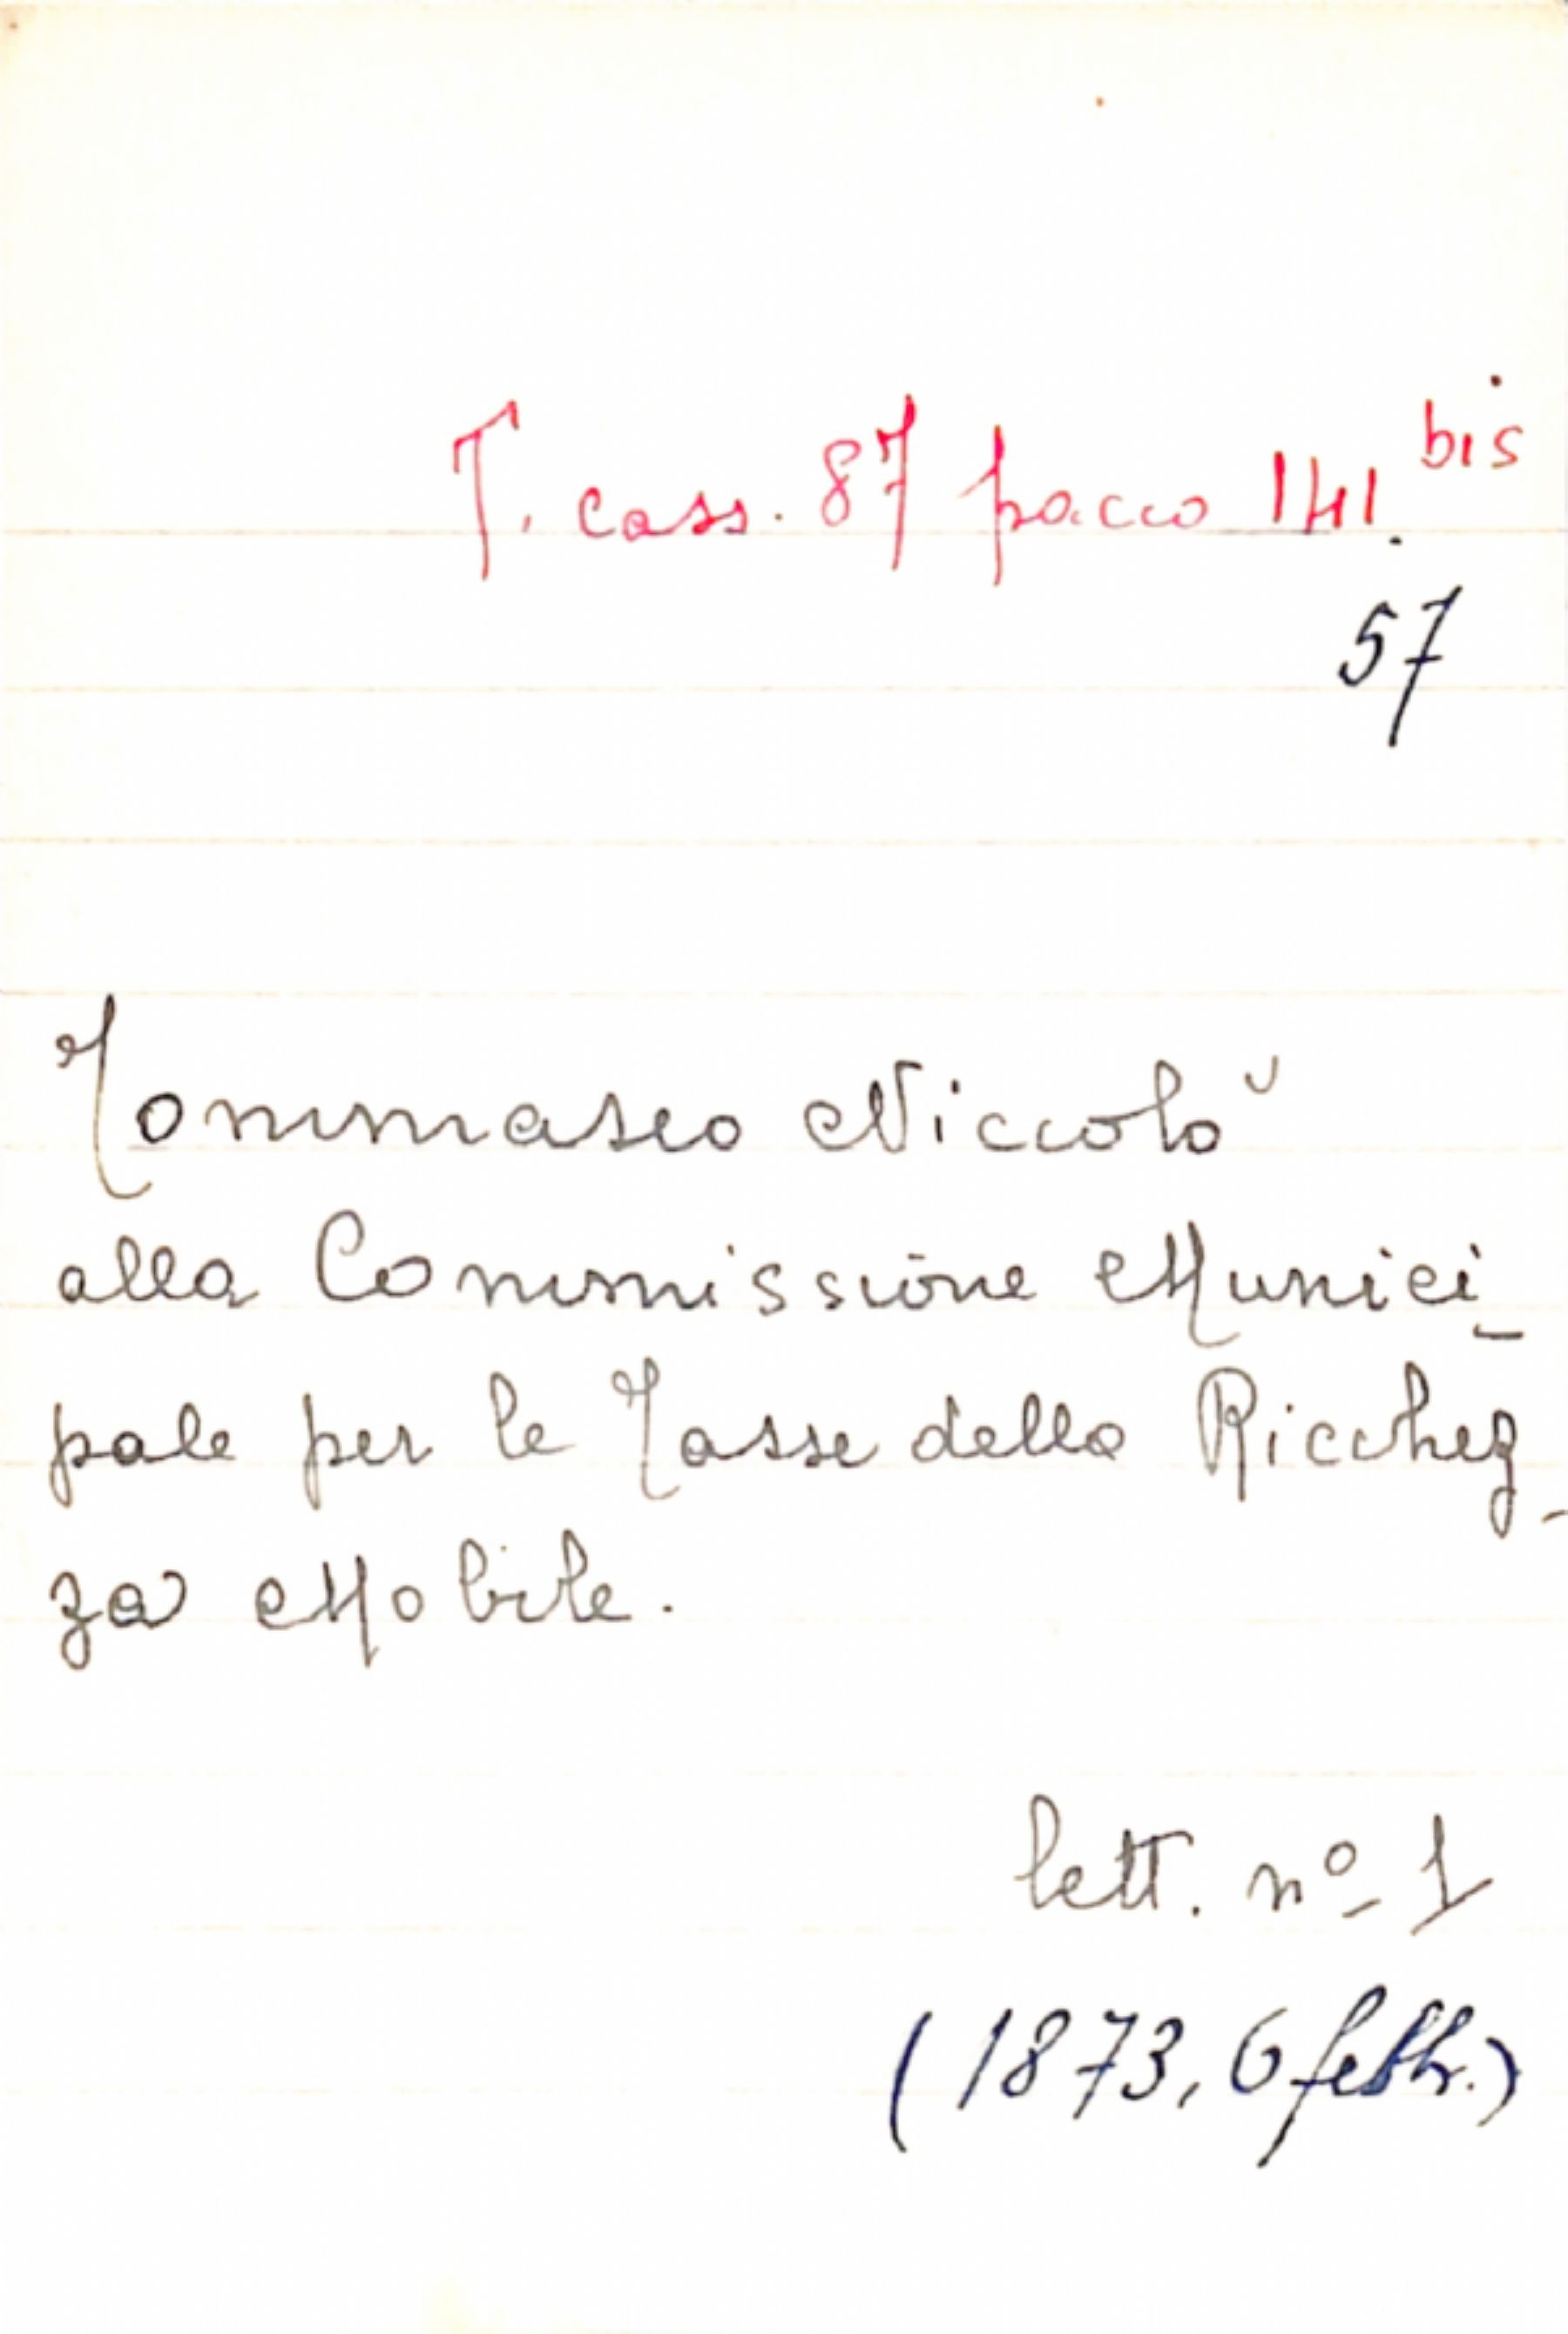 T. cass. 87 pacco 141. bis
57
Tommaseo Niccolò
alla Commissione Munici_
pale per le Tasse della Ricchez_
za Mobile.
lett. nº 1
(1873, 6 febbr.)